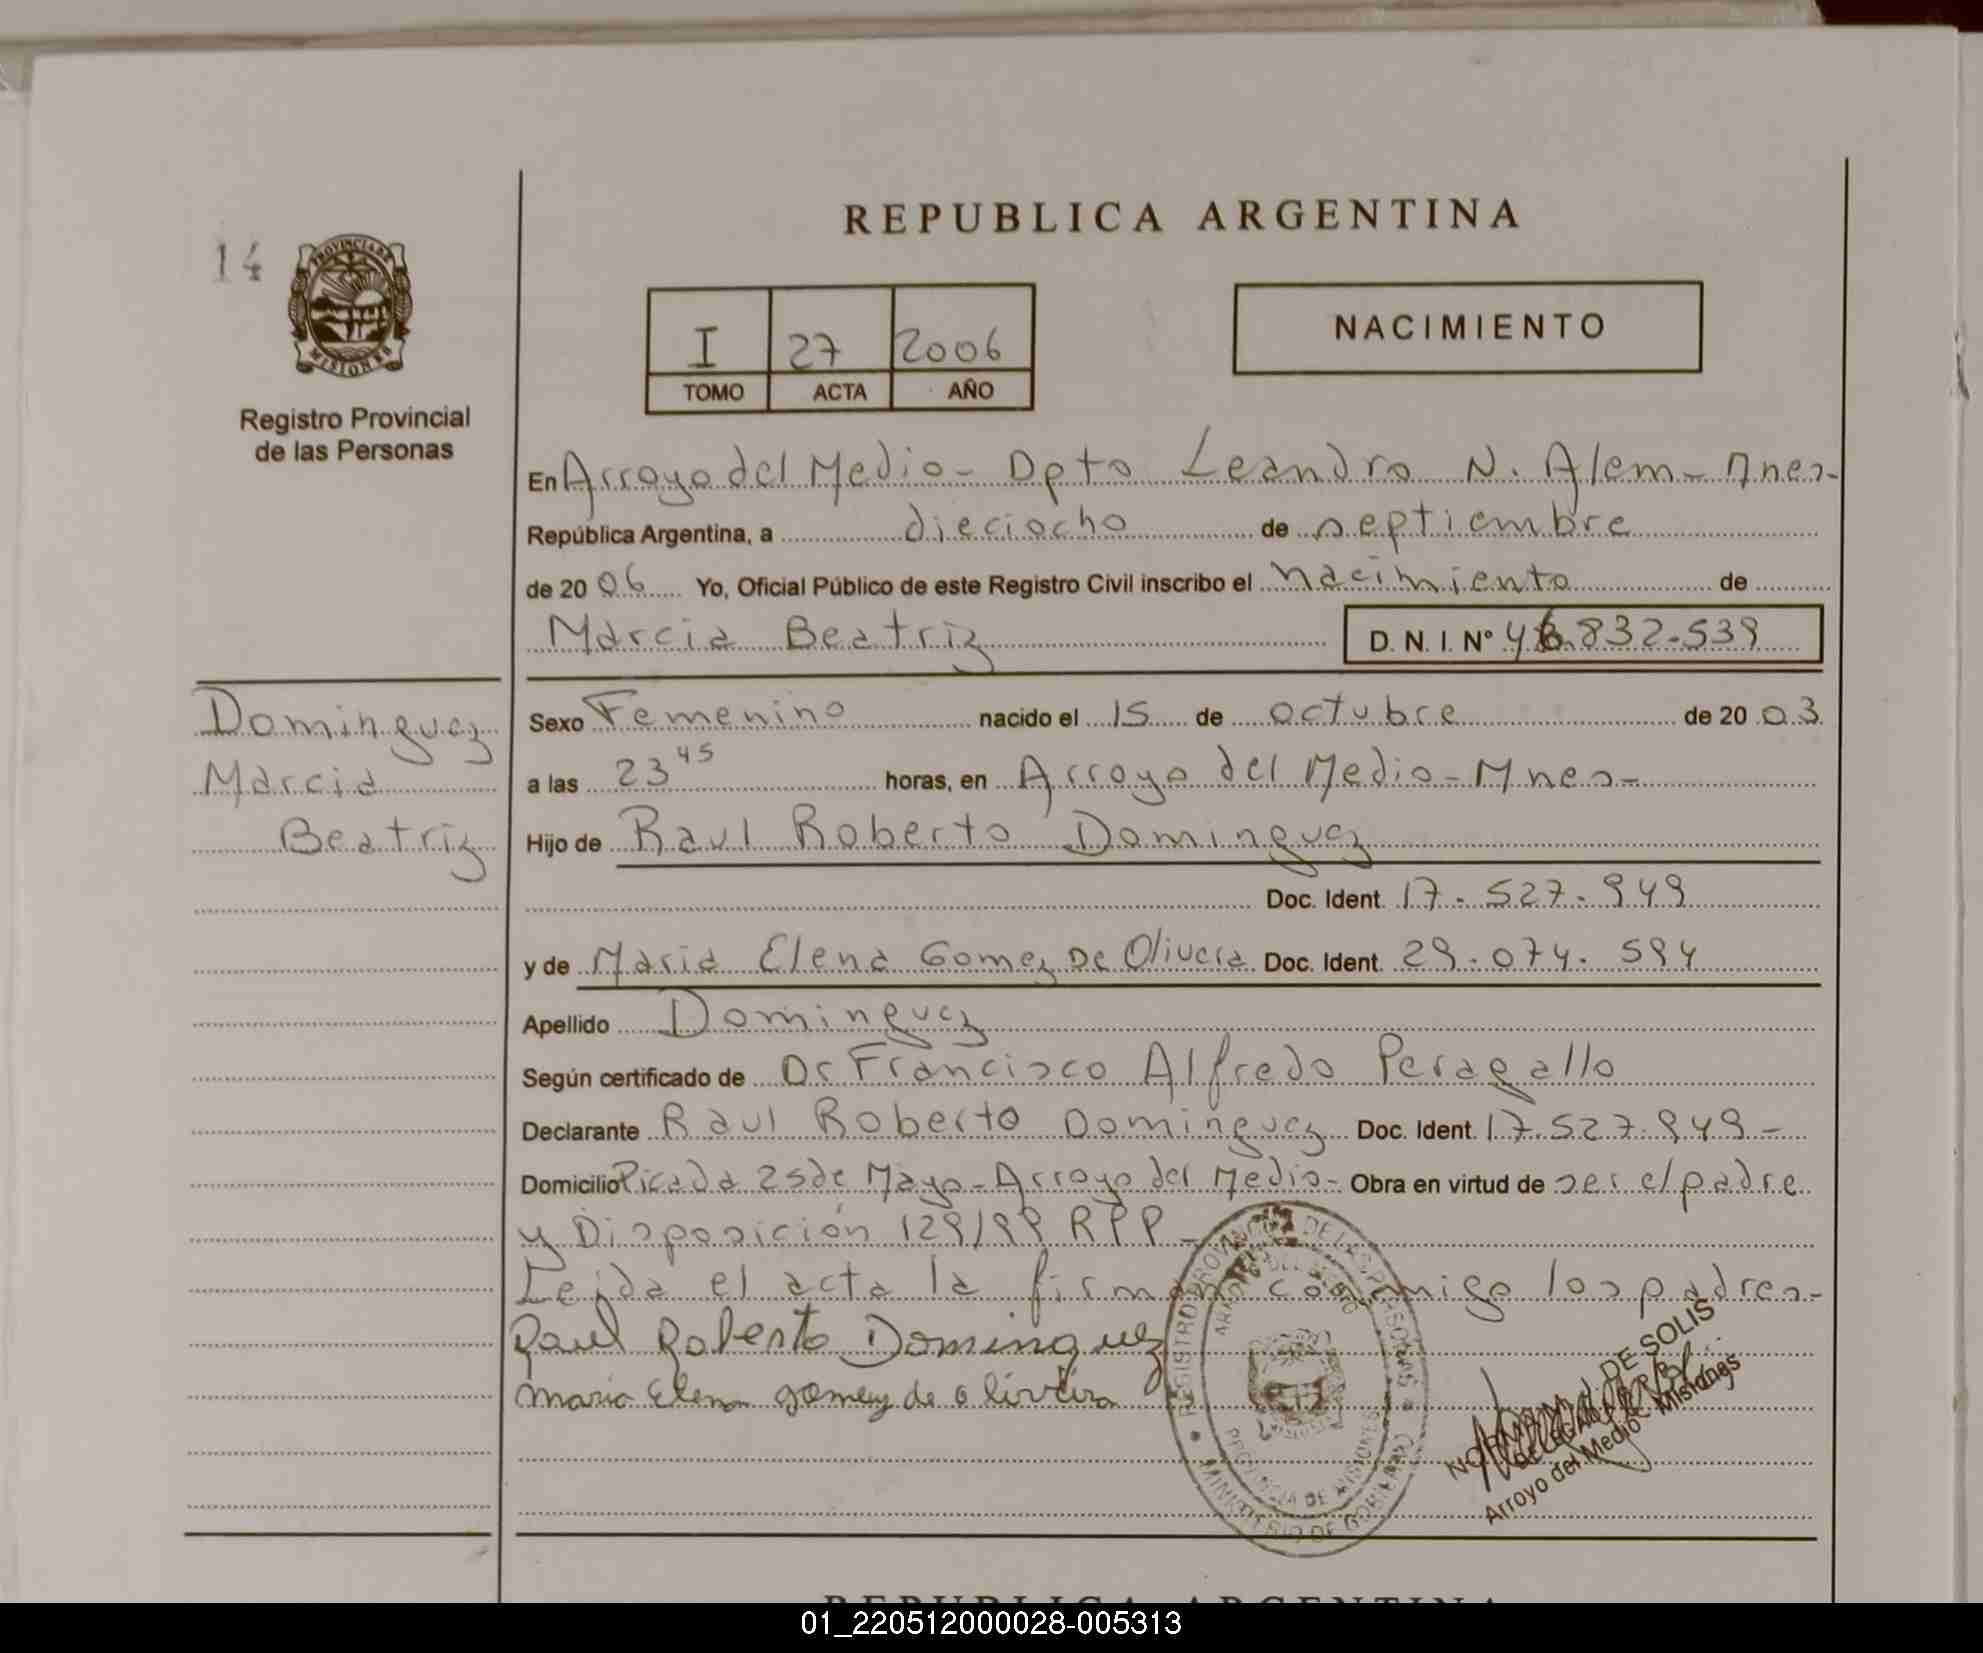 REPUBLICA ARGENTINA
14
PROVINCIA DE
MISIONES
Registro Provincial
de las Personas
I 27 2006
TOMO ACTA AÑO
NACIMIENTO
En Arroyo del Medio - Dpto Leandro N. Alem - Mnes -
República Argentina, a dieciocho de septiembre
de 20 06 Yo, Oficial Público de este Registro Civil inscribo el nacimiento de
Marcia Beatriz D. N. I. Nº 46.832.539
Dominguez
Marcia
Beatriz
Sexo Femenino nacido el 15 de octubre de 20 03
a las 23 45 horas, en Arroyo del Medio - Mnes -
Hijo de Raul Roberto Dominguez
Doc. Ident. 17.527.949
y de Maria Elena Gomez De Olivera Doc. Ident. 29.074.594
Apellido Dominguez
Según certificado de Dr Francisco Alfredo Peragallo
Declarante Raul Roberto Dominguez Doc. Ident. 17.527.949 -
Domicilio Picada 25 de Mayo - Arroyo del Medio - Obra en virtud de ser el padre
y Disposición 129/99 RPP -
Leida el acta la firman conmigo los padres -
Raul Roberto Dominguez
maria Elena gomez de oliveira
REGISTRO PROVINCIAL DE LAS PERSONAS
MINISTERIO DE GOBIERNO
PROVINCIA DE MISIONES
DE SOLIS
Arroyo del Medio - Misiones
REPUBLICA ARGENTINA
01_220512000028-005313